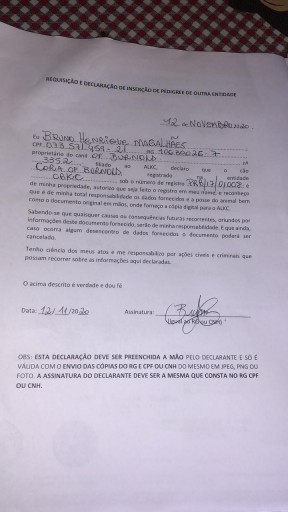 REQUISIÇÃO E DECLARAÇÃO DE INSERÇÃO DE PEDIGREE DE OUTRA ENTIDADE
12 de NOVEMBRO 2020.
Eu BRUNO HENRIQUE MAGALHÃES
CPF 073.571.459-21
proprietário do canil OF BURNOLD nº
3352 filiado ao ALKC, declaro que o cão
CORA OF BURNOLD registrado na entidade
CBKC sob o número de registro é
de minha propriedade, autorizo que seja feito o registro em meu nome, e reconheço
que é de minha total responsabilidade os dados fornecidos e a posse do animal bem
como o documento original em mãos, onde forneço a cópia digital para o ALKC.
Sabendo-se que quaisquer causas ou consequências futuras recorrentes, oriundos por
informações deste documento fornecido, serão de minha responsabilidade. E que ainda,
caso ocorra algum desencontro de dados fornecidos o documento poderá ser
cancelado.
Tenho ciência dos meus atos e me responsabilizo por ações cíveis e criminais que
possam recorrer sobre as informações aqui declaradas.
O acima descrito é verdade e dou fé
Data: 12/11/2020 Assinatura:
(Igual ao RG ou CNH)
OBS: ESTA DECLARAÇÃO DEVE SER PREENCHIDA A MÃO PELO DECLARANTE E SÓ É
VÁLIDA COM O ENVIO DAS CÓPIAS DO RG E CPF OU CNH DO MESMO EM JPEG, PNG OU
FOTO. A ASSINATURA DO DECLARANTE DEVE SER A MESMA QUE CONSTA NO RG CPF
OU CNH.